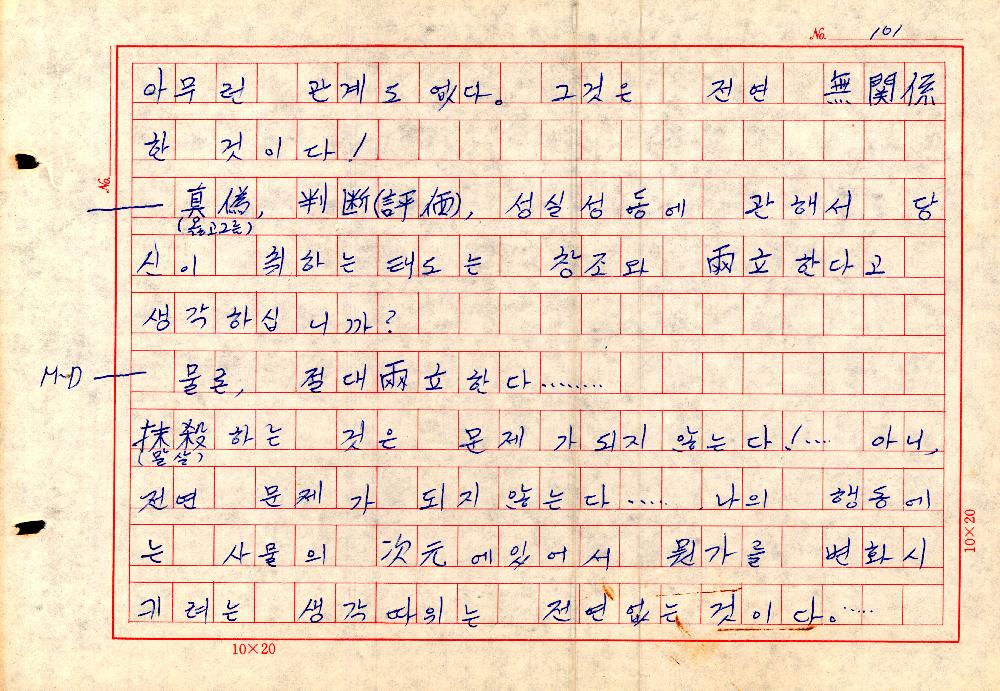 No. 101
아무런 관계도 없다. 그것은 전연 無関係
한 것이다!
No.
— 真偽, 判断(評価), 성실성동에 관해서 당
(옳고그릇)
신이 취하는 태도는 창조와 兩立한다고
생각하십니까?
M-D — 물론, 절대兩立한다........
抹殺하는 것은 문제가되지 않는다!... 아니,
(말살)
전연 문제가 되지 않는다..... 나의 행동에
는 사물의 次元에있어서 뭔가를 변화시
키려는 생각따위는 전연없는 것이다.....
10×20
10×20